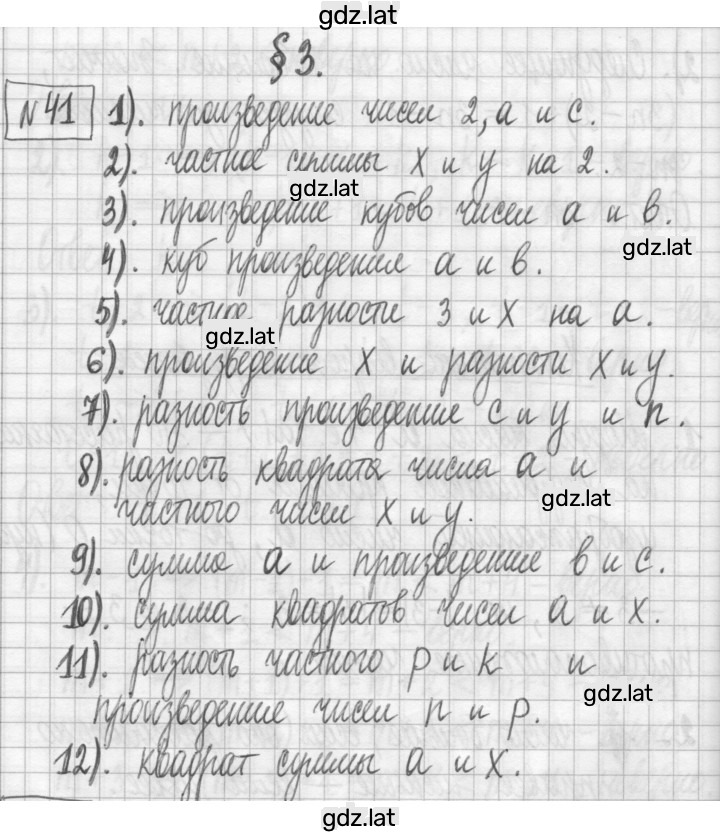 gdz.lat
§ 3.
№ 41 1). произведение чисел 2, а и с.
2). частное суммы х и у на 2.
gdz.lat
3). произведение кубов чисел а и в.
gdz.lat
4). куб произведения а и в.
5). частное разности 3 и х на а.
gdz.lat
6). произведение х и разности х и у.
7). разность произведение с и у и п.
8). разность квадрата числа а и
gdz.lat
частного чисел х и у.
9). сумма а и произведение в и с.
10). сумма квадратов чисел а и х.
11). разность частного р и к и
gdz.lat
произведение чисел п и р.
12). квадрат суммы а и х.
gdz.lat